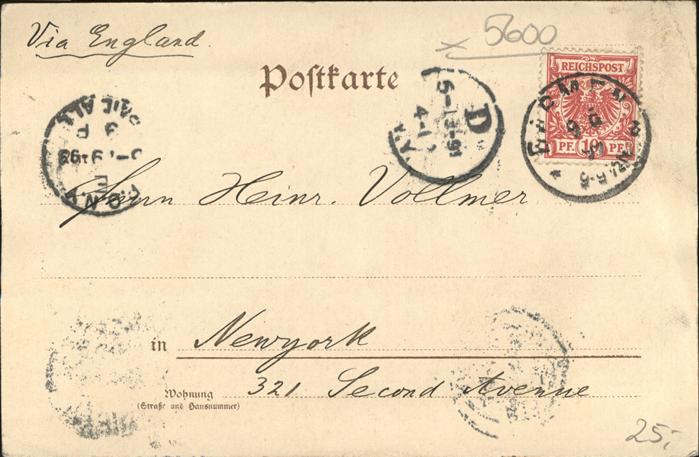 Via England.
5600
REICHSPOST
PF. 10 PF.
Postkarte
BARMEN
D
Herrn Heinr. Vollmer
in Newyork
Wohnung
(Straße und Hausnummer)
321 Second Avenue
25,-